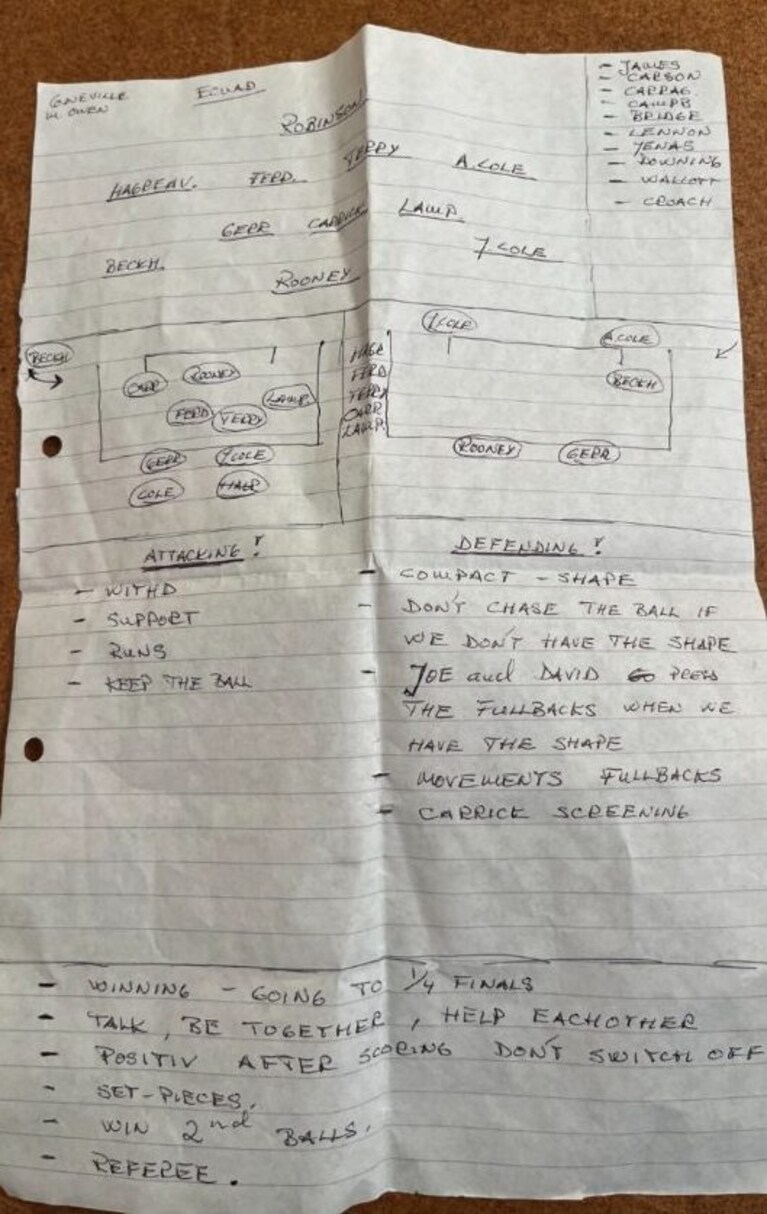 G.NEVILLE
M. OWEN
ECUAD
ROBINSON
TERRY
HAGREAV. FERD. A.COLE
GERR CARRICK LAMP.
BECKH. J.COLE
ROONEY
- JAMES
- CARSON
- CARRAG.
- CAMPB
- BRIDGE
- LENNON
- JENAS
- DOWNING
- WALCOTT
- CROACH
BECKH
CARR ROONEY
FERD TERRY LAMP.
GERR J.COLE
COLE HAGR
HAGR
FERD
TERRY
CARR.
LAMP.
J.COLE
A.COLE
BECKH
ROONEY GERR
ATTACKING !
- WITHD
- SUPPORT
- RUNS
- KEEP THE BALL
DEFENDING !
- COMPACT - SHAPE
- DON'T CHASE THE BALL IF
WE DON'T HAVE THE SHAPE
- JOE and DAVID GO PRESS
THE FULLBACKS WHEN WE
HAVE THE SHAPE
- MOVEMENTS FULLBACKS
- CARRICK SCREENING
- WINNING - GOING TO 1/4 FINALS
- TALK, BE TOGETHER, HELP EACHOTHER
- POSITIV AFTER SCORING DON'T SWITCH OFF
- SET-PIECES.
- WIN 2nd BALLS.
- REFEREE.